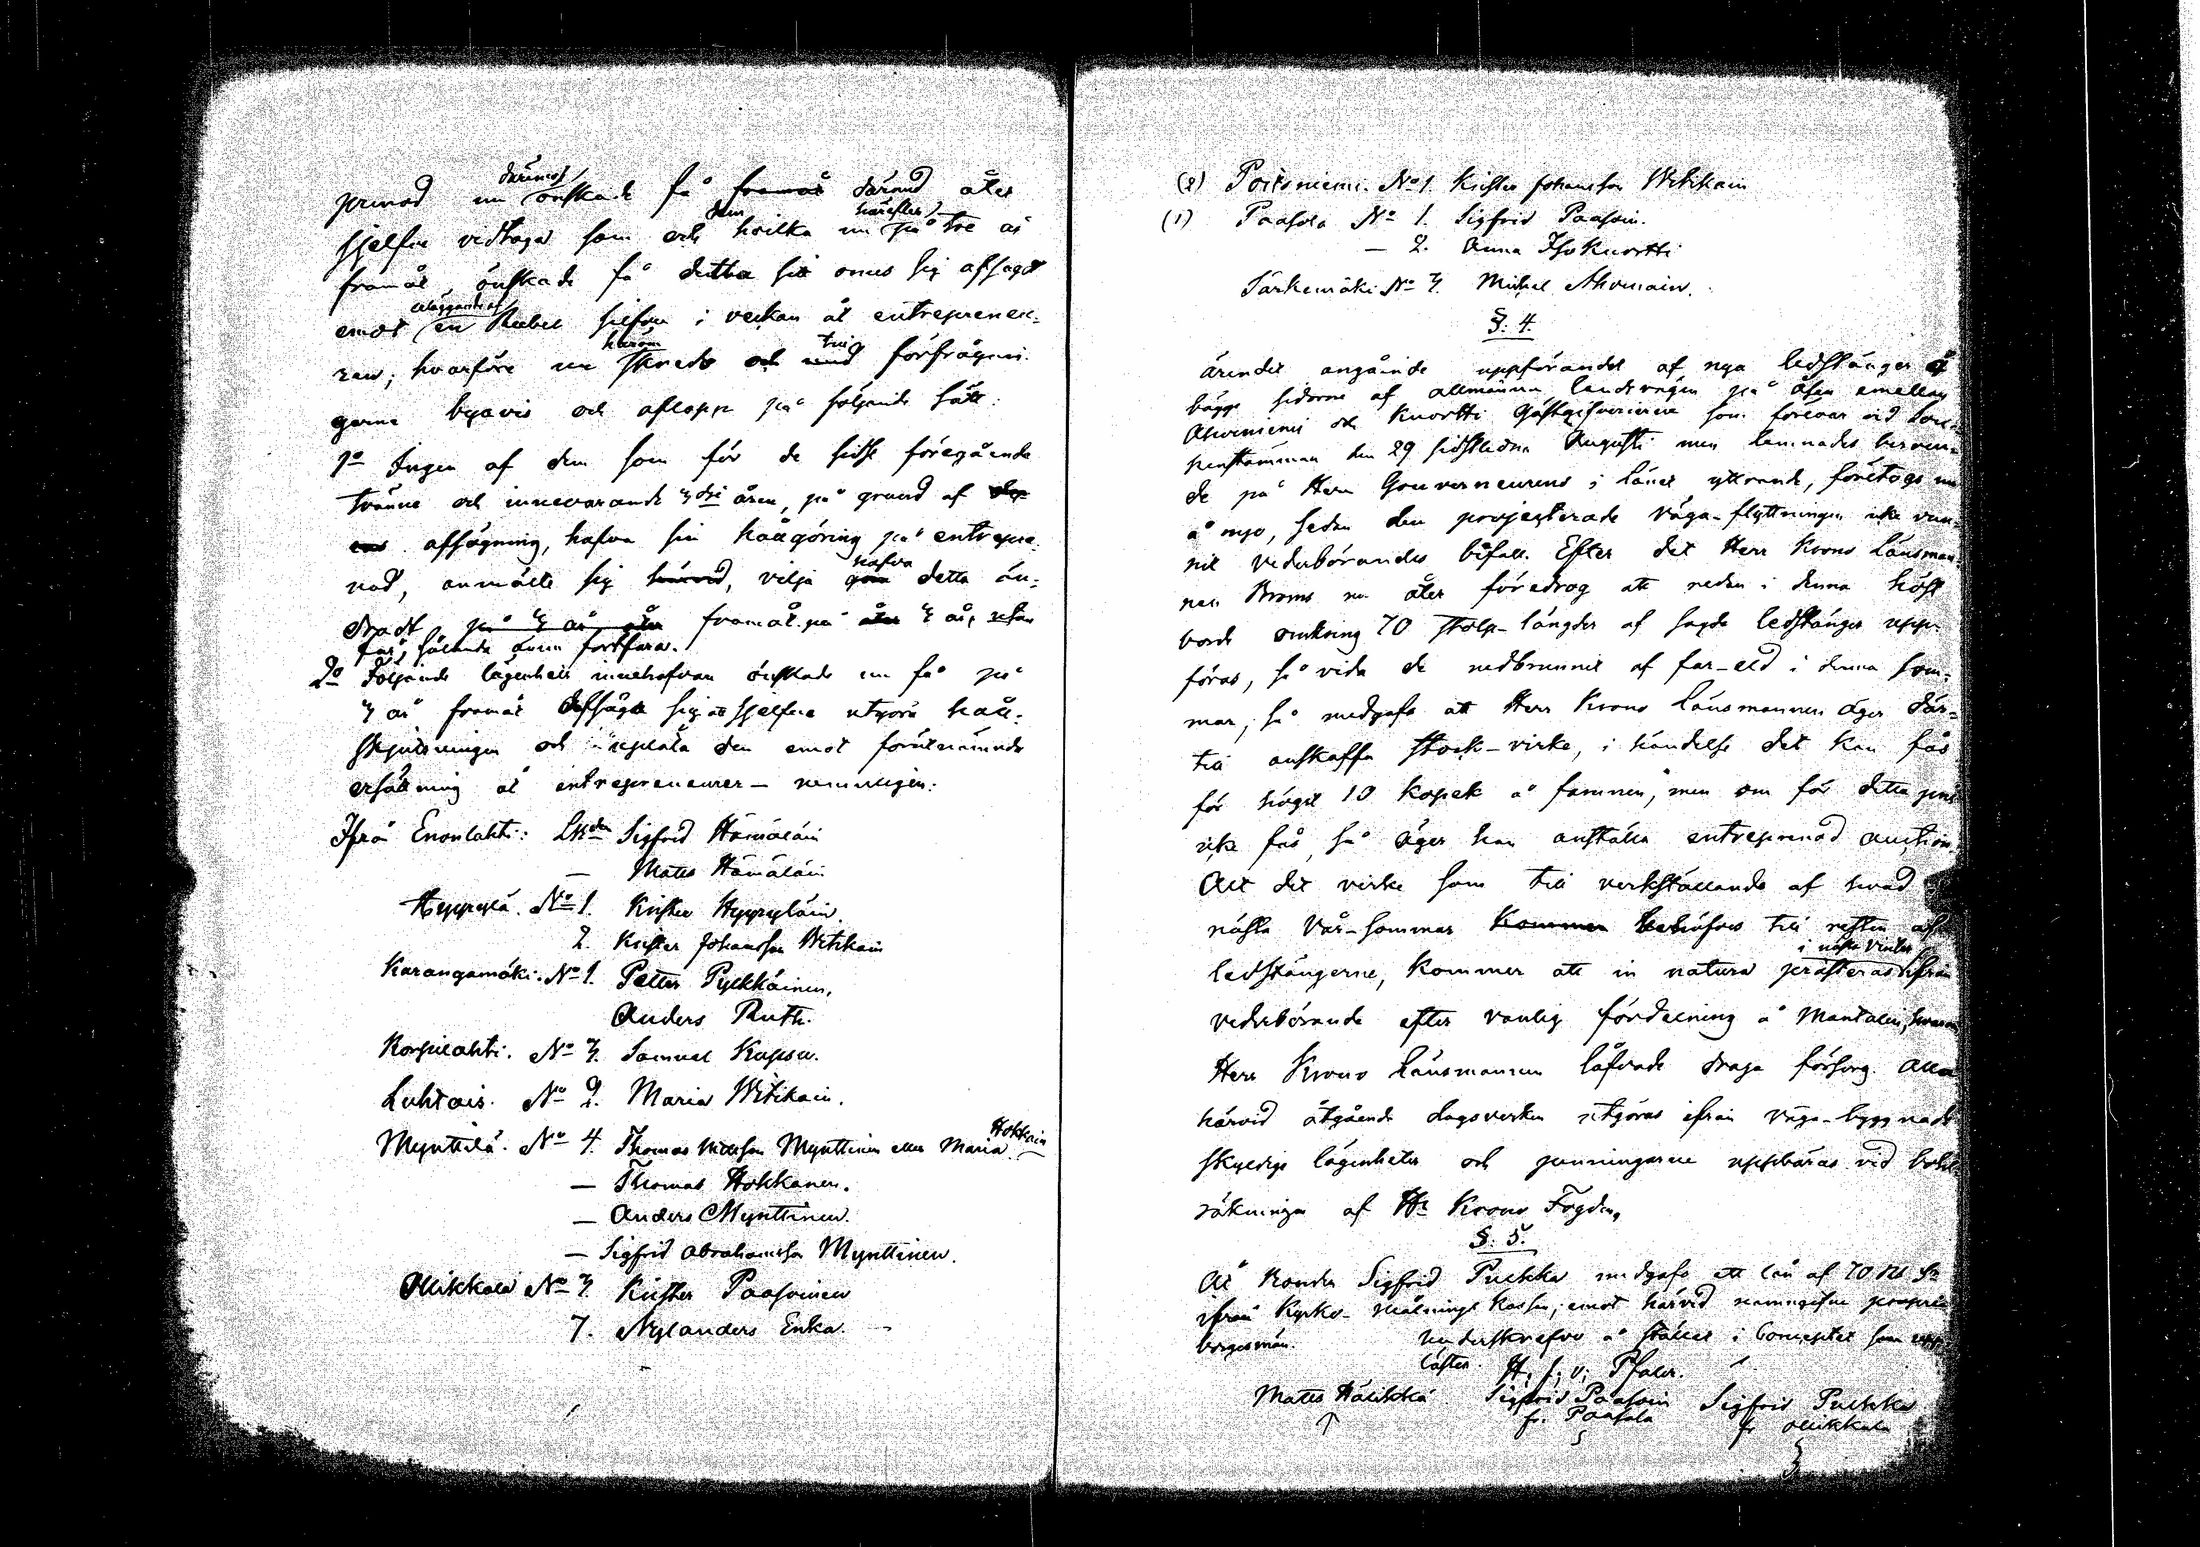 prenad nu däremot önskade få framåt därmed åter
sjelfve vidtaga som och dem hvilka nu härefter på tre år
framåt, önskade få detta sit onus sig afsagt
emot erläggande af en Rubel silfver i veckan åt entrepreneu-
ren; hvarföre nu skredo härom och med trenne förfrågnin-
garne byavis och aflopp på följande sätt:
1o Ingen af dem som för de sidst föregående
tvänne och innevarande 3dje åren, på grund af
afsägning, hafva sin hållgöring på entrepre-
nad, anmälte sig härvid, vilja hafva detta än-
dradt, på 3 år framåt på 3 år, utan
får således äfven fortfara.
2o Följande lägenhets innehafvare önskade nu få på
3 år framåt afsäga sig at sjelfve utgöra håll-
skjutsningen och upplåta den emot förutnämnde
ersättning åt entrepreneurer – nemligen:
Ifrån Enonlahti: Sigfrid Hämäläin
— Matts Hämäläin
Hyppylä. No 1. Krister Hyppyläin.
2. Krister Johansson Witikain
Karangamäki. No 1. Petter Pylkkäinen,
Anders Ruth.
Korpilahti. No 3. Samuel Kupsu.
Luhtais. No 2. Maria Witikain.
Mynttilä. No 4. Thomas Mynttinen eller Maria Hokkain
— Thomas Hokkanen.
— Anders Mynttinen.
— Sigfrid Abrahamsson Mynttinen.
Ollikkala No 3. Krister Paasoinen
7. Nylanders Enka. -
(2) Porsniemi. No 1. Krister Johansson Witikain
(1) Paasola No 1. Sigfrid Paasoin.
— 2. Anna IsoKuortti
Särkemäki No 3. Michel Ahonain.
§. 4.
ärendet angående uppförandet af nya ledstänger å
bägge sidorne af allmänna landsvägen på åsen emellan
Ahvenniemi och Kuortti Gästgifverierne som förevar vid Soc-
kenstämman den 29 sidstledne Augusti men lemnades beroen-
de på Herr Gouverneurens i länet yttrande, företogs nu
å nyo, sedan den projecterade väga-flyttningen icke vun-
nit vederbörandes bifall. Efter det Herr Krono Länsman-
nen Broms nu åter föredrog att redan i denna höst
borde omkring 70 stolp-längder af sagde ledstänger upp-
föras, så vida de nedbrunnit af far-eld i denna som-
mar, så medgafs att Herr Krono Länsmannen äger där-
till anskaffa stock-virke, i händelse det kan fås
för högst 10 kopek å famnen, men om för detta pris
icke fås, så äger han anställa entreprenad auction.
Allt det virke som till verkställande af hvad
nästa Vår-sommar kommer behöfves till resten af
ledstängerne, kommer att in natura i nästa vinter præsteras ifrån
vederbörande efter vanlig fördelning å Mantalen, hvarom
Herr Krono Länsmannen låfvade draga försorg. Alla
härvid åtgående dagsverken utgöras ifrån väga-byggnads
skyldige lägenheter och penningarne uppbäras vid
räkningen af Hr Krono Fogden,
§. 5.
Åt Bonden Sigfrid Pukka medgafs ett lån af 70 Rb Sr
ifrån Kyrko-målnings kassan, emot härvid namngifne proprie
borgesmän. Underskrefvo å stället i Conceptet som upp-
lästes. H. J. v. Pfaler.
Matts Häkikkä Sigfrid Paasoin Sigfrid Pukka
fr. Paasola fr Ollikkala